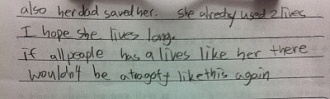 also her dad saved her. She already used 2 lives
I hope she lives long.
if all people has a lives like her there
wouldn't be atragoty like this again